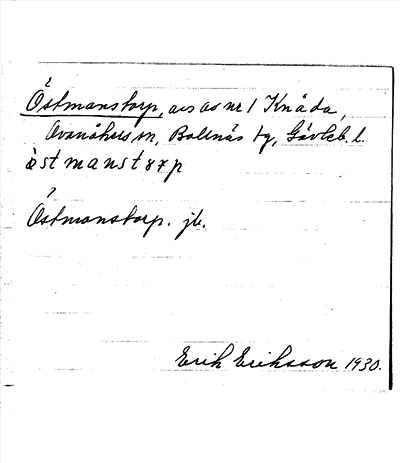 Östmanstorp, avs av nr 1 Knåda,
Ovanåkers sn, Bollnäs tg, Gävleb. l.
östmanstorp
Östmanstorp. jb.
Erik Eriksson 1930.